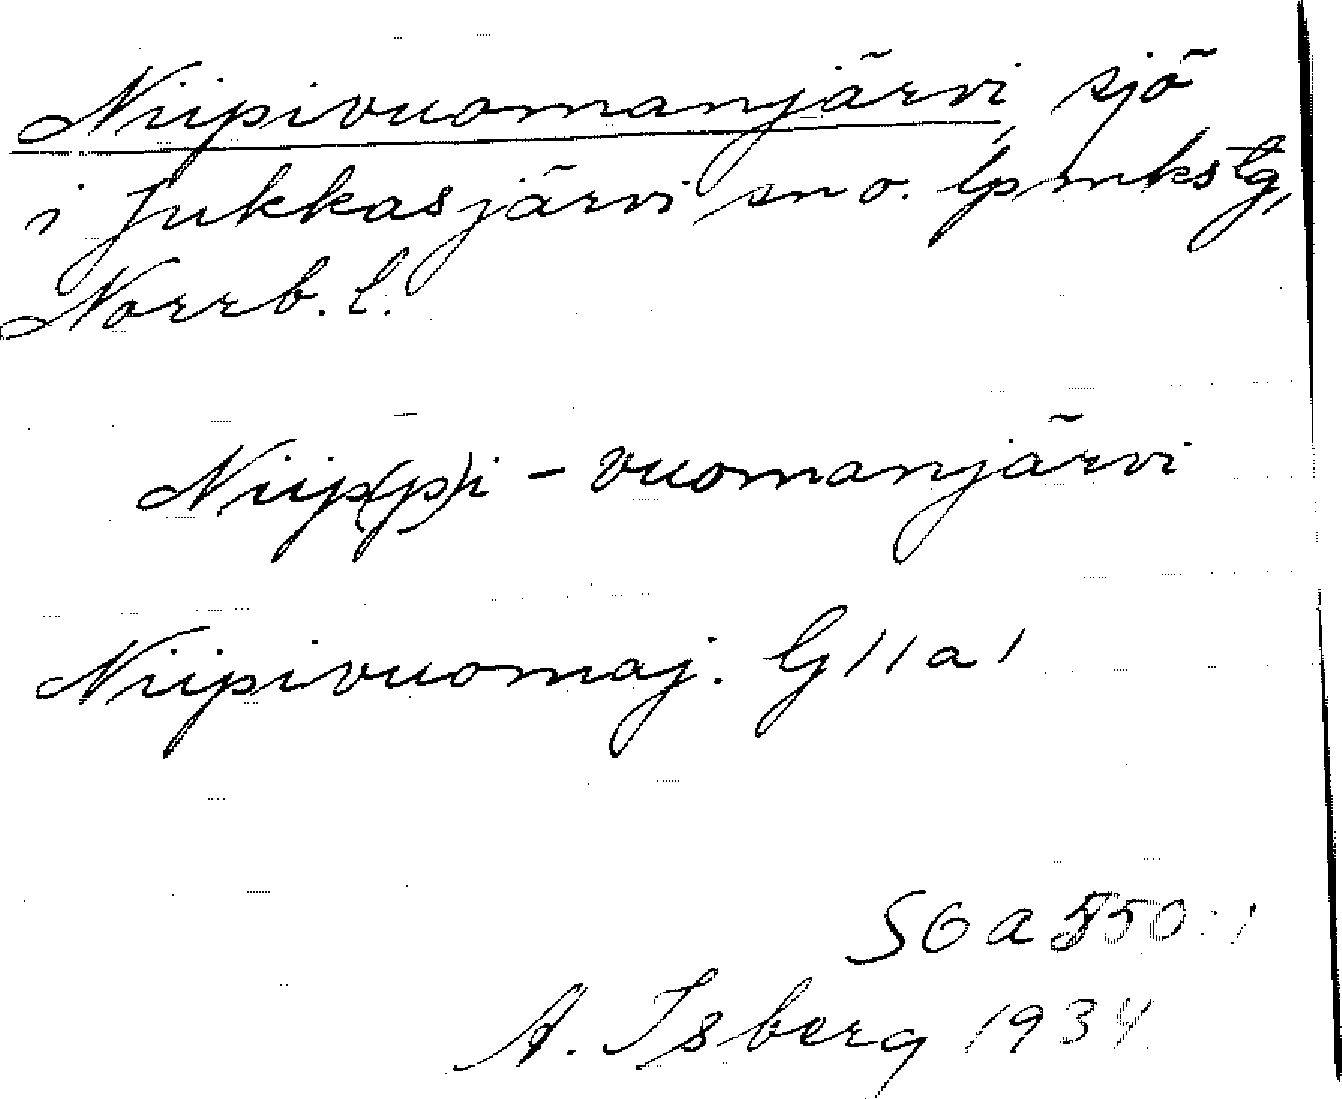 Niipivuomanjärvi, sjö
i Jukkasjärvi sn o. lpmkstg,
Norrb. l.
Niip(p)i - vuomanjärvi
Niipivuomaj. G 11 a 1
SOa 550:1
A. Isberg 1934